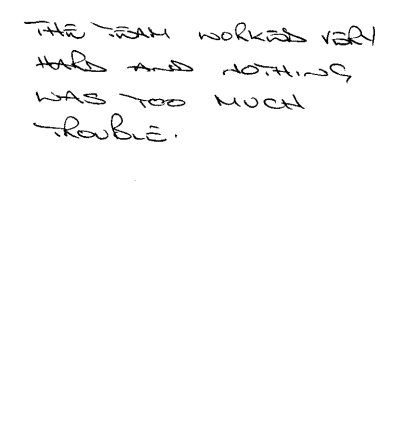 THE TEAM WORKED VERY
HARD AND NOTHING
WAS TOO MUCH
TROUBLE.